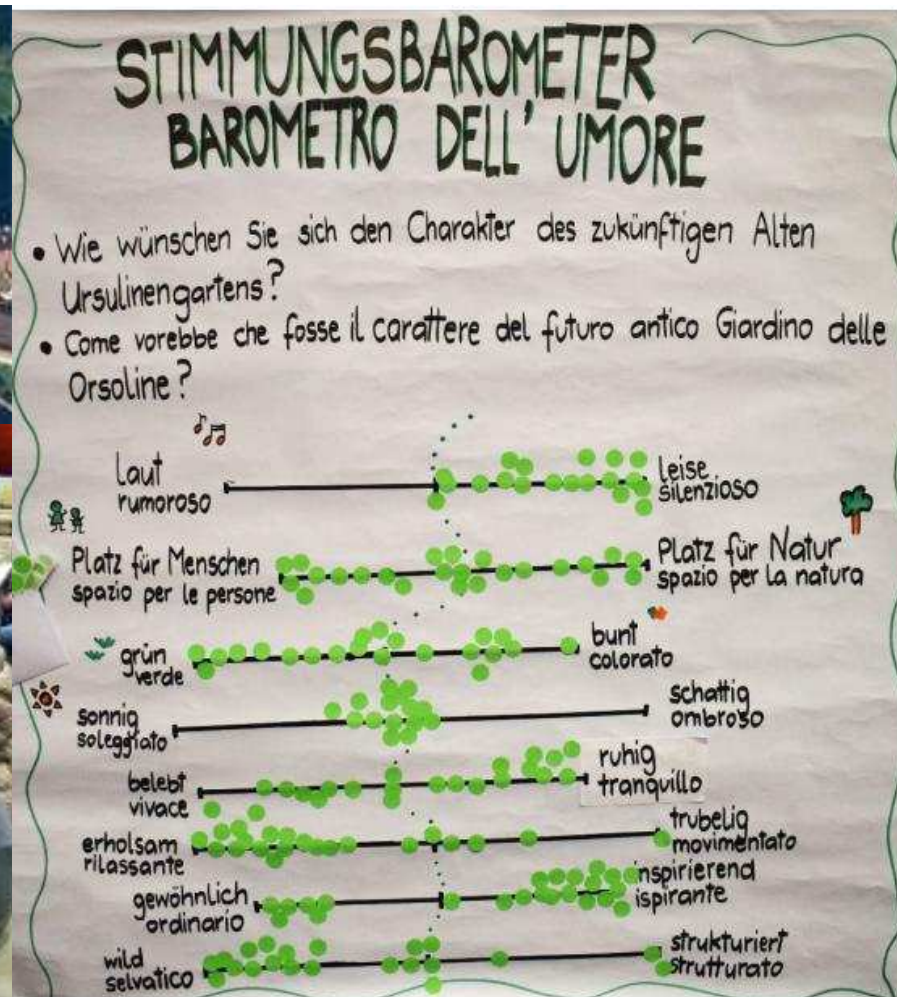 STIMMUNGSBAROMETER
BAROMETRO DELL' UMORE
• Wie wünschen Sie sich den Charakter des zukünftigen Alten
Ursulinengartens?
• Come vorebbe che fosse il carattere del futuro antico Giardino delle
Orsoline?
laut
rumoroso
leise
silenzioso
Platz für Menschen
spazio per le persone
Platz für Natur
spazio per la natura
grün
verde
bunt
colorato
sonnig
soleggiato
schattig
ombroso
belebt
vivace
ruhig
tranquillo
erholsam
rilassante
trubelig
movimentato
gewöhnlich
ordinario
inspirierend
ispirante
wild
selvatico
strukturiert
strutturato